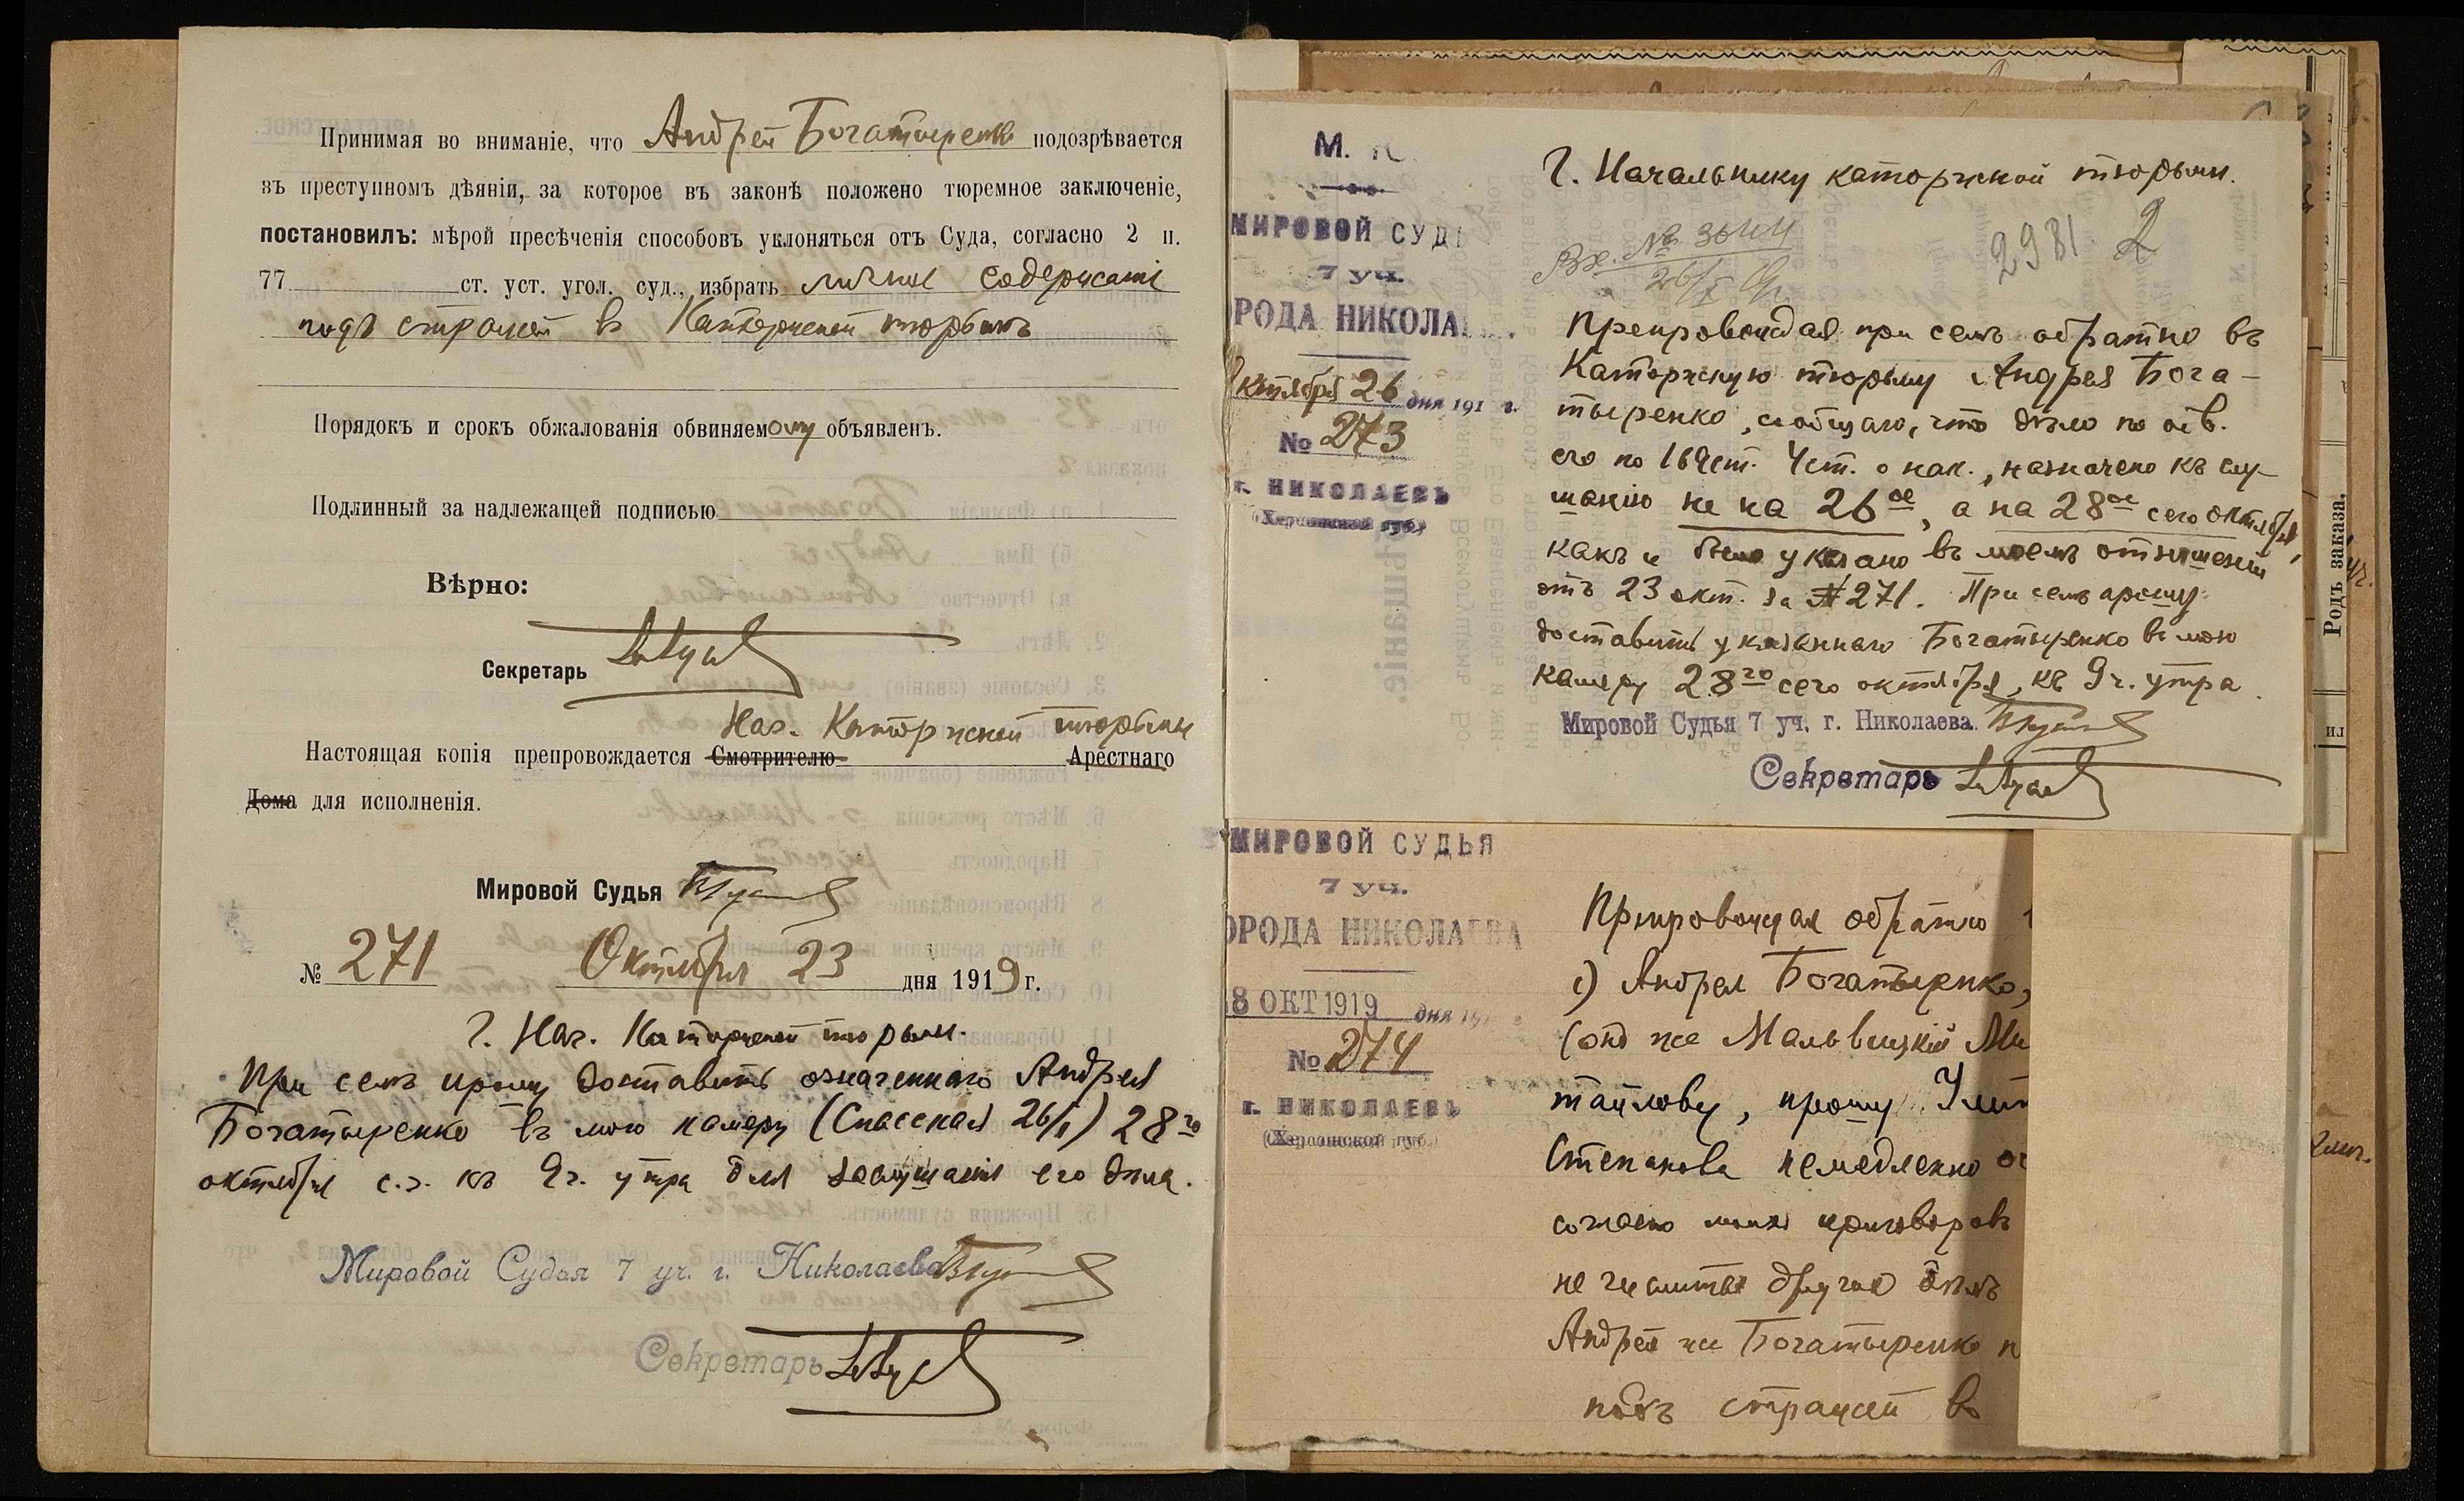 Принимая во вниманіе, что Андрей Богатыренко подозрѣвается
въ преступномъ дѣяніи, за которое въ законѣ положено тюремное заключеніе,
постановилъ: мѣрой пресѣченія способовъ уклоняться отъ Суда, согласно 2 п.
77 ст. уст. угол. суд., избрать личное содержаніе
подъ стражей въ Каторжной тюрьмѣ
Порядокъ и срокъ обжалованія обвиняемому объявленъ.
Подлинный за надлежащей подписью
Вѣрно:
Секретарь
Нач. Каторжной тюрьмы
Настоящая копія препровождается Смотрителю Арестнаго
Дома для исполненія.
Мировой Судья
№ 271 Октября 23 дня 1919 г.
Г. Нач. Каторжной тюрьмы.
При семъ прошу доставить означеннаго Андрея
Богатыренко въ мою камеру (Спасская 26/1) 28го
октября с.г. къ 9 ч. утра для заслушанія его дѣла.
Мировой Судья 7 уч. г. Николаева
Секретарь
М.
МИРОВОЙ СУДЬ
7 уч.
РОДА НИКОЛА
ктября 26 дня 191 г.
№ 273
г. НИКОЛАЕВЪ
(Херсонской губ.)
Г. Начальнику каторжной тюрьмы.
Вх. № 3044
26/X
2981 2
Препровождая при семъ обратно въ
Каторжную тюрьму Андрея Бога-
тыренко, сообщаю, что дѣло по обв.
его по 169 ст. Уст. о нак., назначено къ слу-
шанію не на 26ое, а на 28ое сего октября,
какъ и было указано въ моемъ отношеніи
отъ 23 окт. за № 271. При семъ прошу
доставить указаннаго Богатыренко въ мою
камеру 28го сего октября, къ 9 ч. утра.
Мировой Судья 7 уч. г. Николаева.
Секретарь
МИРОВОЙ СУДЬЯ
7 уч.
ОРОДА НИКОЛАЕВА
8 ОКТ 1919 дня 191 г
№ 274
г. НИКОЛАЕВЪ
(Херсонской губ.)
Препровождая обратно
1) Андрея Богатыренко,
(онъ же Мальвицкій Ми
тайлову, прошу
Степанова немедленно ос
согласно моихъ приговоровъ
не числится другихъ дѣлъ
Андрея же Богатыренко п
подъ стражей въ
Родъ заказа.
ил